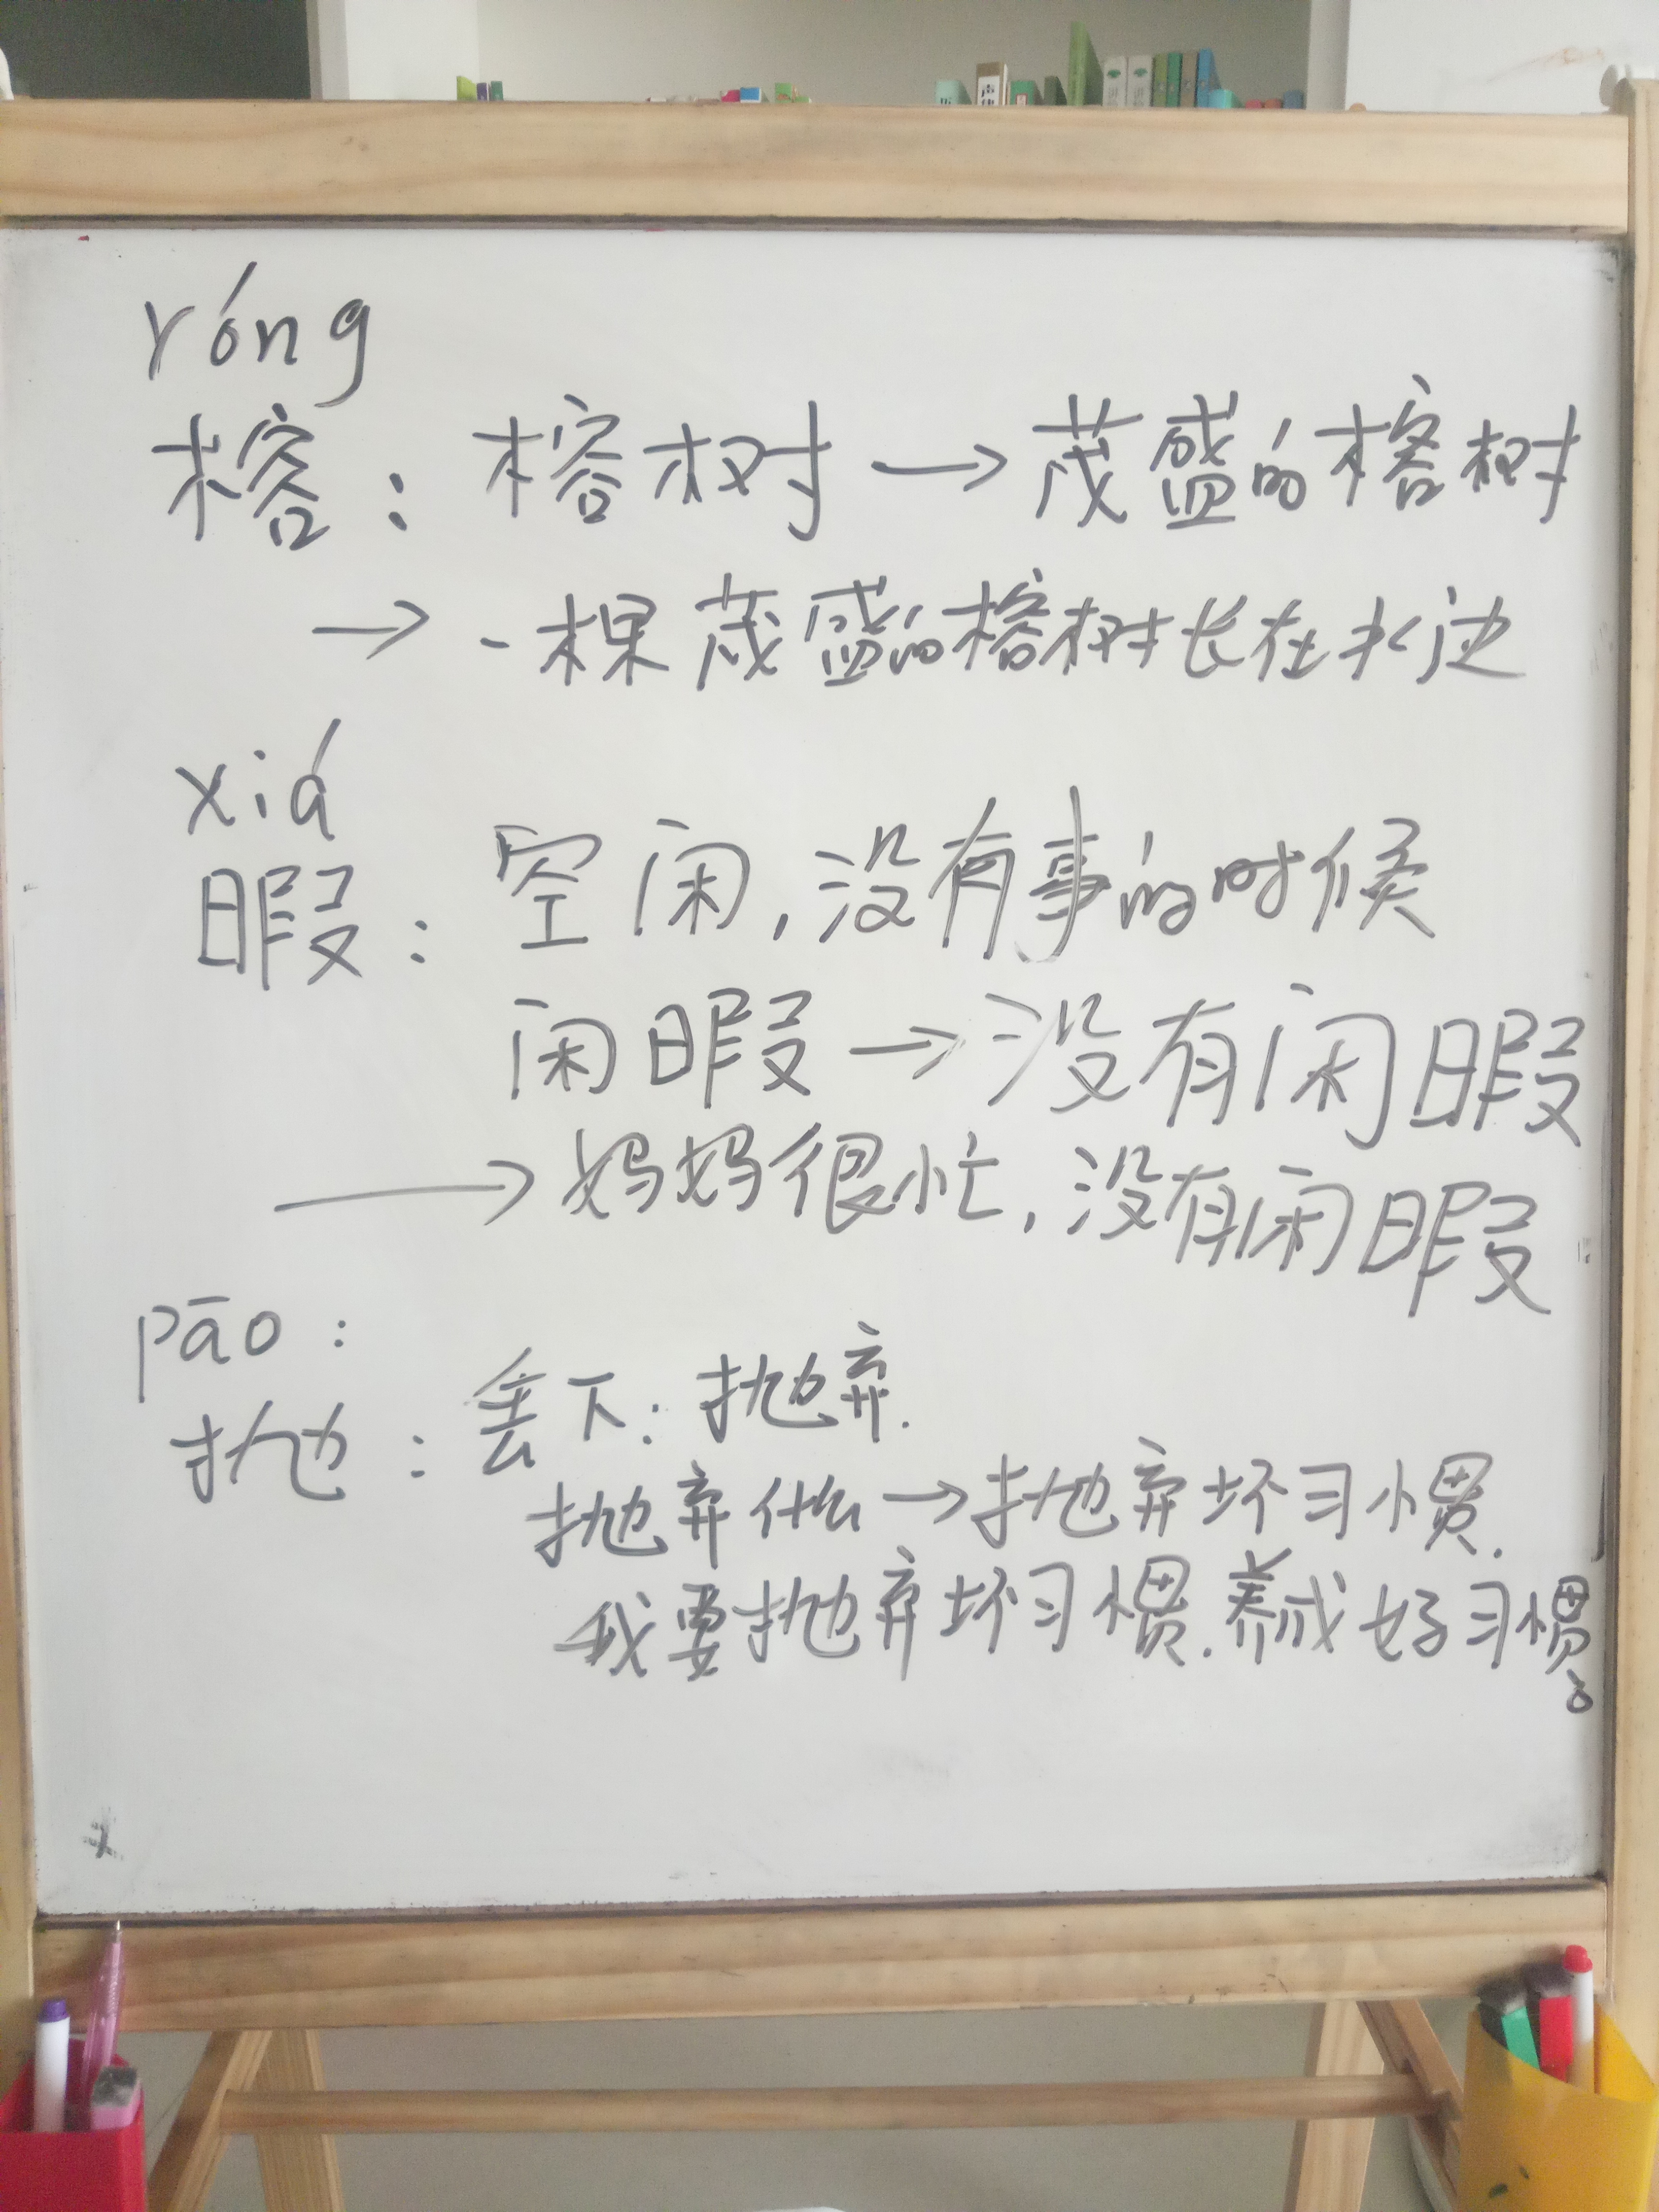 róng
榕：榕树→茂盛的榕树
→一棵茂盛的榕树长在水边
xiá
暇：空闲，没有事的时候
闲暇→没有闲暇
→妈妈很忙，没有闲暇
pāo：
抛：丢下：抛弃.
抛弃什么→抛弃坏习惯.
我要抛弃坏习惯.养成好习惯。